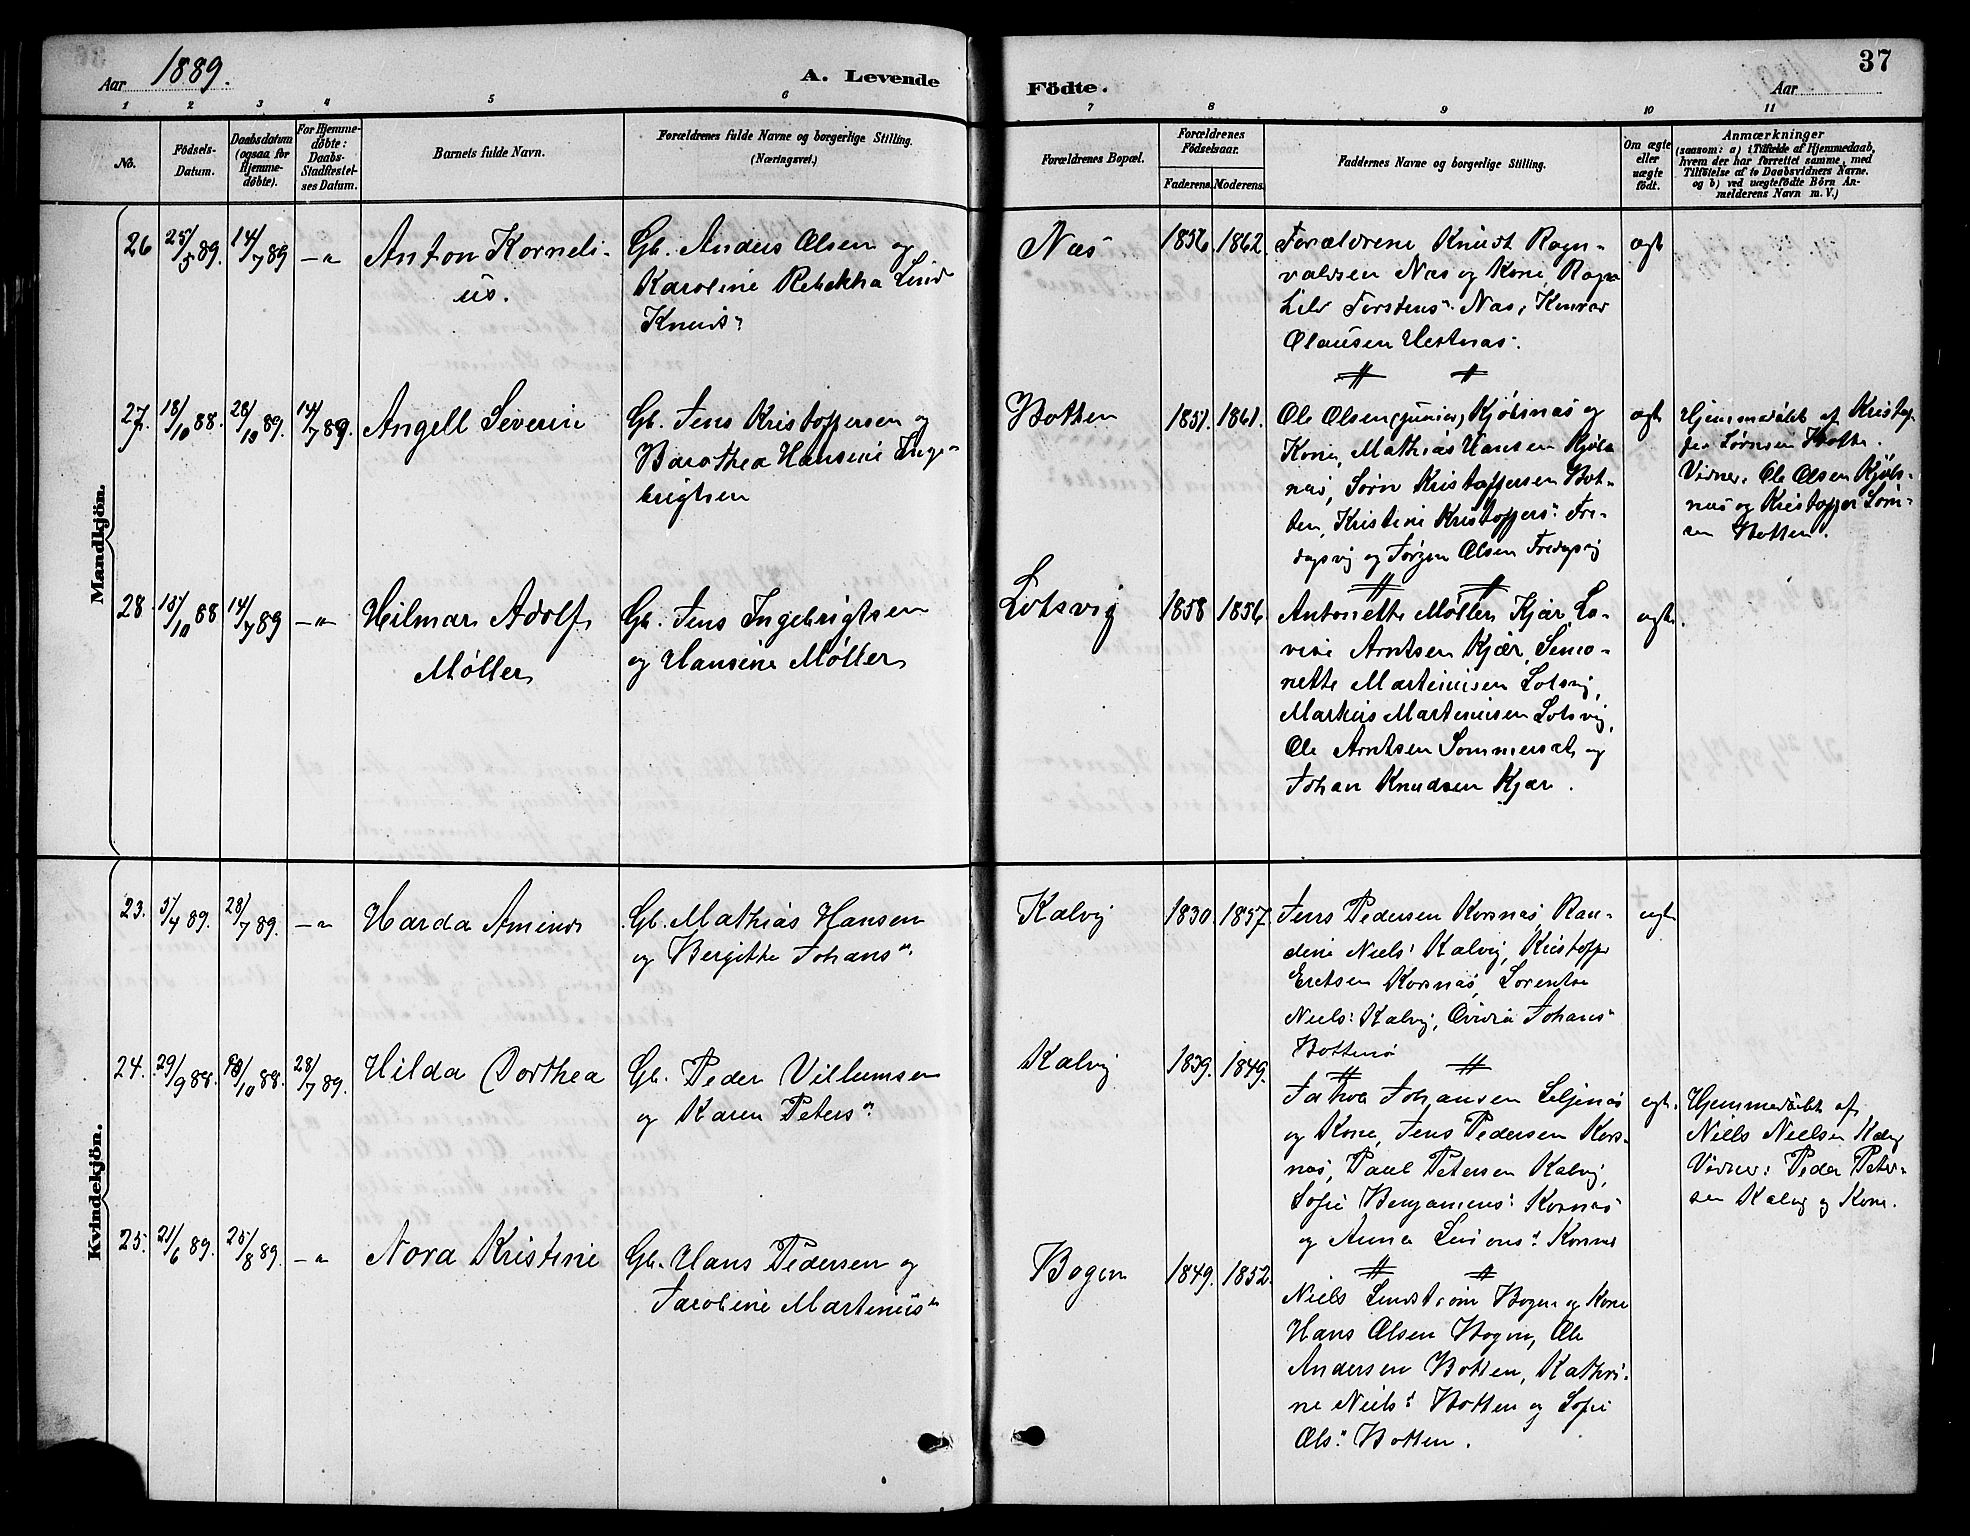 Aar 1889.
A. Levende
Födte.
37
Aar
1 2 3 4 5 6 7 8 9 10 11
No.
Födsels-
Datum.
Daabsdatum
(ogsaa for
Hjemme-
døbte).
For Hjemme-
døbte:
Daabs-
Stadfæstel-
ses Datum.
Barnets fulde Navn.
Forældrenes fulde Navne og borgerlige Stilling.
(Næringsvei.)
Forældrenes Bopæl.
Forældrenes
Födselsaar.
Faderens. Moderens.
Faddernes Navne og borgerlige Stilling.
Om ægte
eller
uægte
födt.
Anmærkninger
(saasom: a) i Tilfælde af Hjemmedaab,
hvem der har forrettet samme, med
Tilföielse af to Daabsvidners Navne.
og b) ved uægtefödte Börn An-
melderens Navn m. V.)
Mandkjön.
26 25/5 89. 14/7 89 —„
Anton Korneli-
us.
Gb. Anders Olsen og
Karoline Rebekka Lind
Knuds"
Næs
1856. 1862.
Forældrene Knudt Ragn-
valdsen Næs og Kone, Ragn
hild Torstens" Næs, Konrad
Olausen Vestnæs.
ægte
27. 18/10 88. 28/10 89. 14/7 89.
Angell Severin
Gb. Jens Kristoffersen og
Barothea Hansine Inge-
brigtsen
Botten
1851. 1861.
Ole Olsen (junior) Kjølsnæs og
Kone, Mathias Hansen Kjøls
næs, Sørn Kristoffersen Bot-
ten, Kristine Kristoffers" Fre-
dagsvig og Jørgen Olsen Fredagsvig
ægte
Hjemmedøbt af Kristof
fer Sørnsen Botten.
Vidner: Ole Olsen Kjøls-
næs og Kristoffer Sørn-
sen Botten.
28. 15/10 88 14/7 89 —„
Hilmar Adolf
Møller
Gb. Jens Ingebrigtsen
og Hansine Møller
Lotsvig
1858 1856.
Antonette Møller Kjær, Lo-
vise Arntsen Kjær, Simo-
nette Martinusen Lotsvig,
Markus Martinusen Lotsvig,
Ole Arntsen Sommersæt og
Johan Knudsen Kjær.
ægte.
Kvindekjön.
23. 5/4 89. 28/7 89. —„
Harda Aminda
Gb. Mathias Hansen
og Bergitte Johans"
Kalvig
1830. 1857.
Jens Pedersen Korsnæs, Ran-
dine Niels" Kalvig, Kristoffer
Eretsen Korsnæs, Lorentse
Niels" Kalvig, Ovidia Johans"
Bottenø
ægte
24. 29/9 88. /10 88. 28/7 89.
Hilda Dorthea
Gb. Peder Villumsen
og Karen Peters"
Kalvig
1839. 1849.
Johansen Liljenæs
og Kone, Jens Pedersen Kors-
næs, Paul Petersen Kalvig,
Sofie Benjamins" Korsnæs
og Anna Simons" Korsnæs
ægte.
Hjemmedøbt af
Niels Nielsen Kalvig
Vidner: Peder Peter-
sen Kalvig og Kone.
25. 21/6 89. 25/8 89. —„
Nora Kristine
Gb. Hans Pedersen og
Karoline Martinus"
Bogen
1849. 1852.
Niels Lindstrøm Bogen og Kone
Hans Olsen Bogen, Ole
Andersen Botten, Kathri-
ne Niels" Botten og Sofie
Ols" Botten.